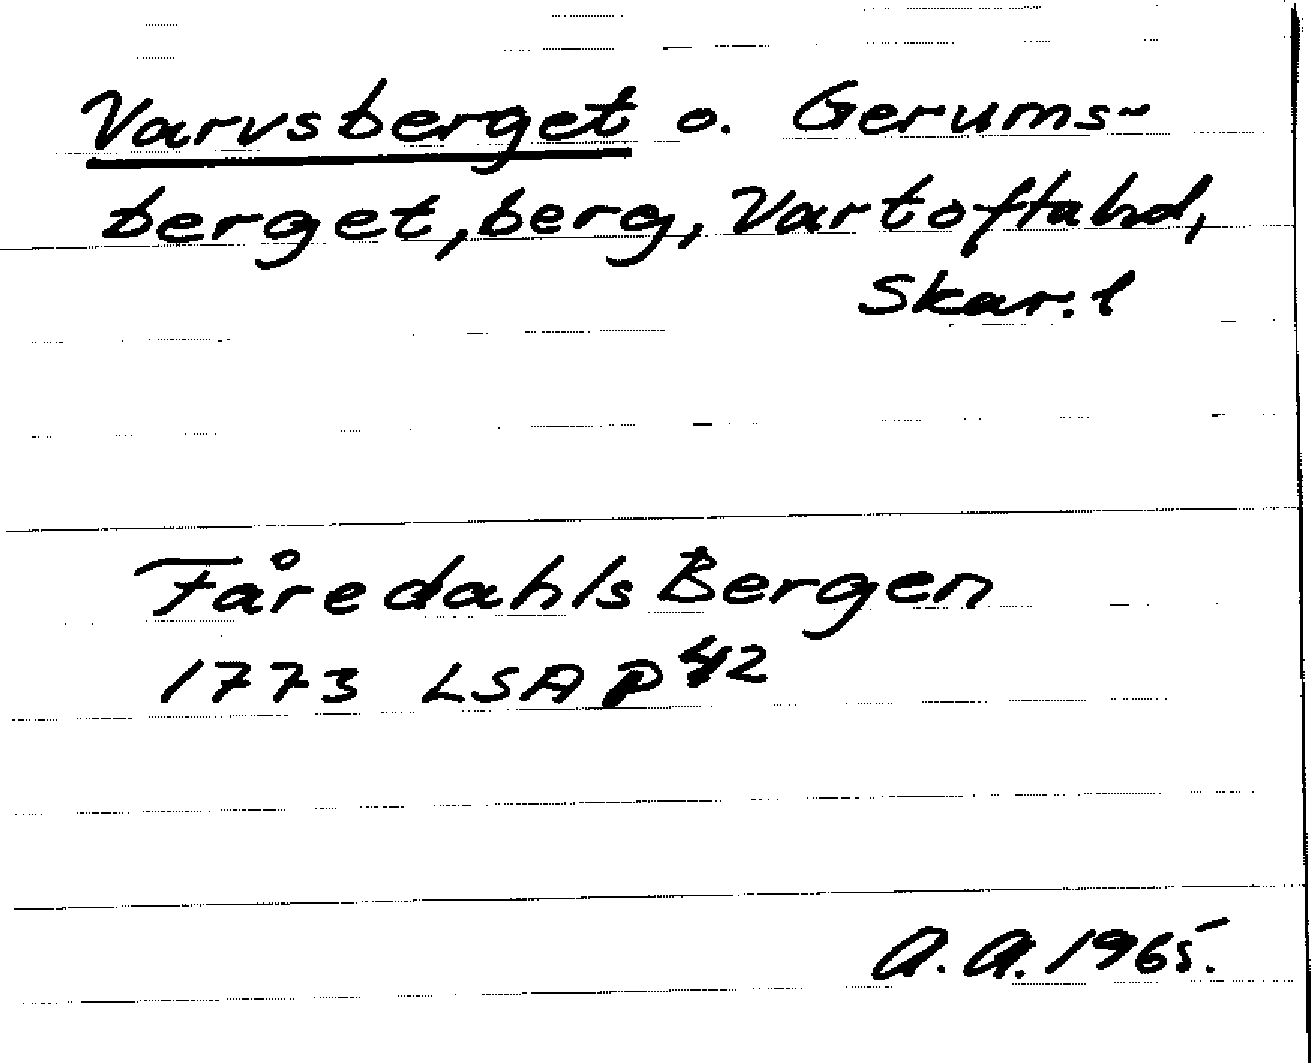 Varvsberget o. Gerums-
berget, berg, Vartoftahd,
Skar. l
Fåredahls Bergen
1773 LSA P 42
A. A. 1965.